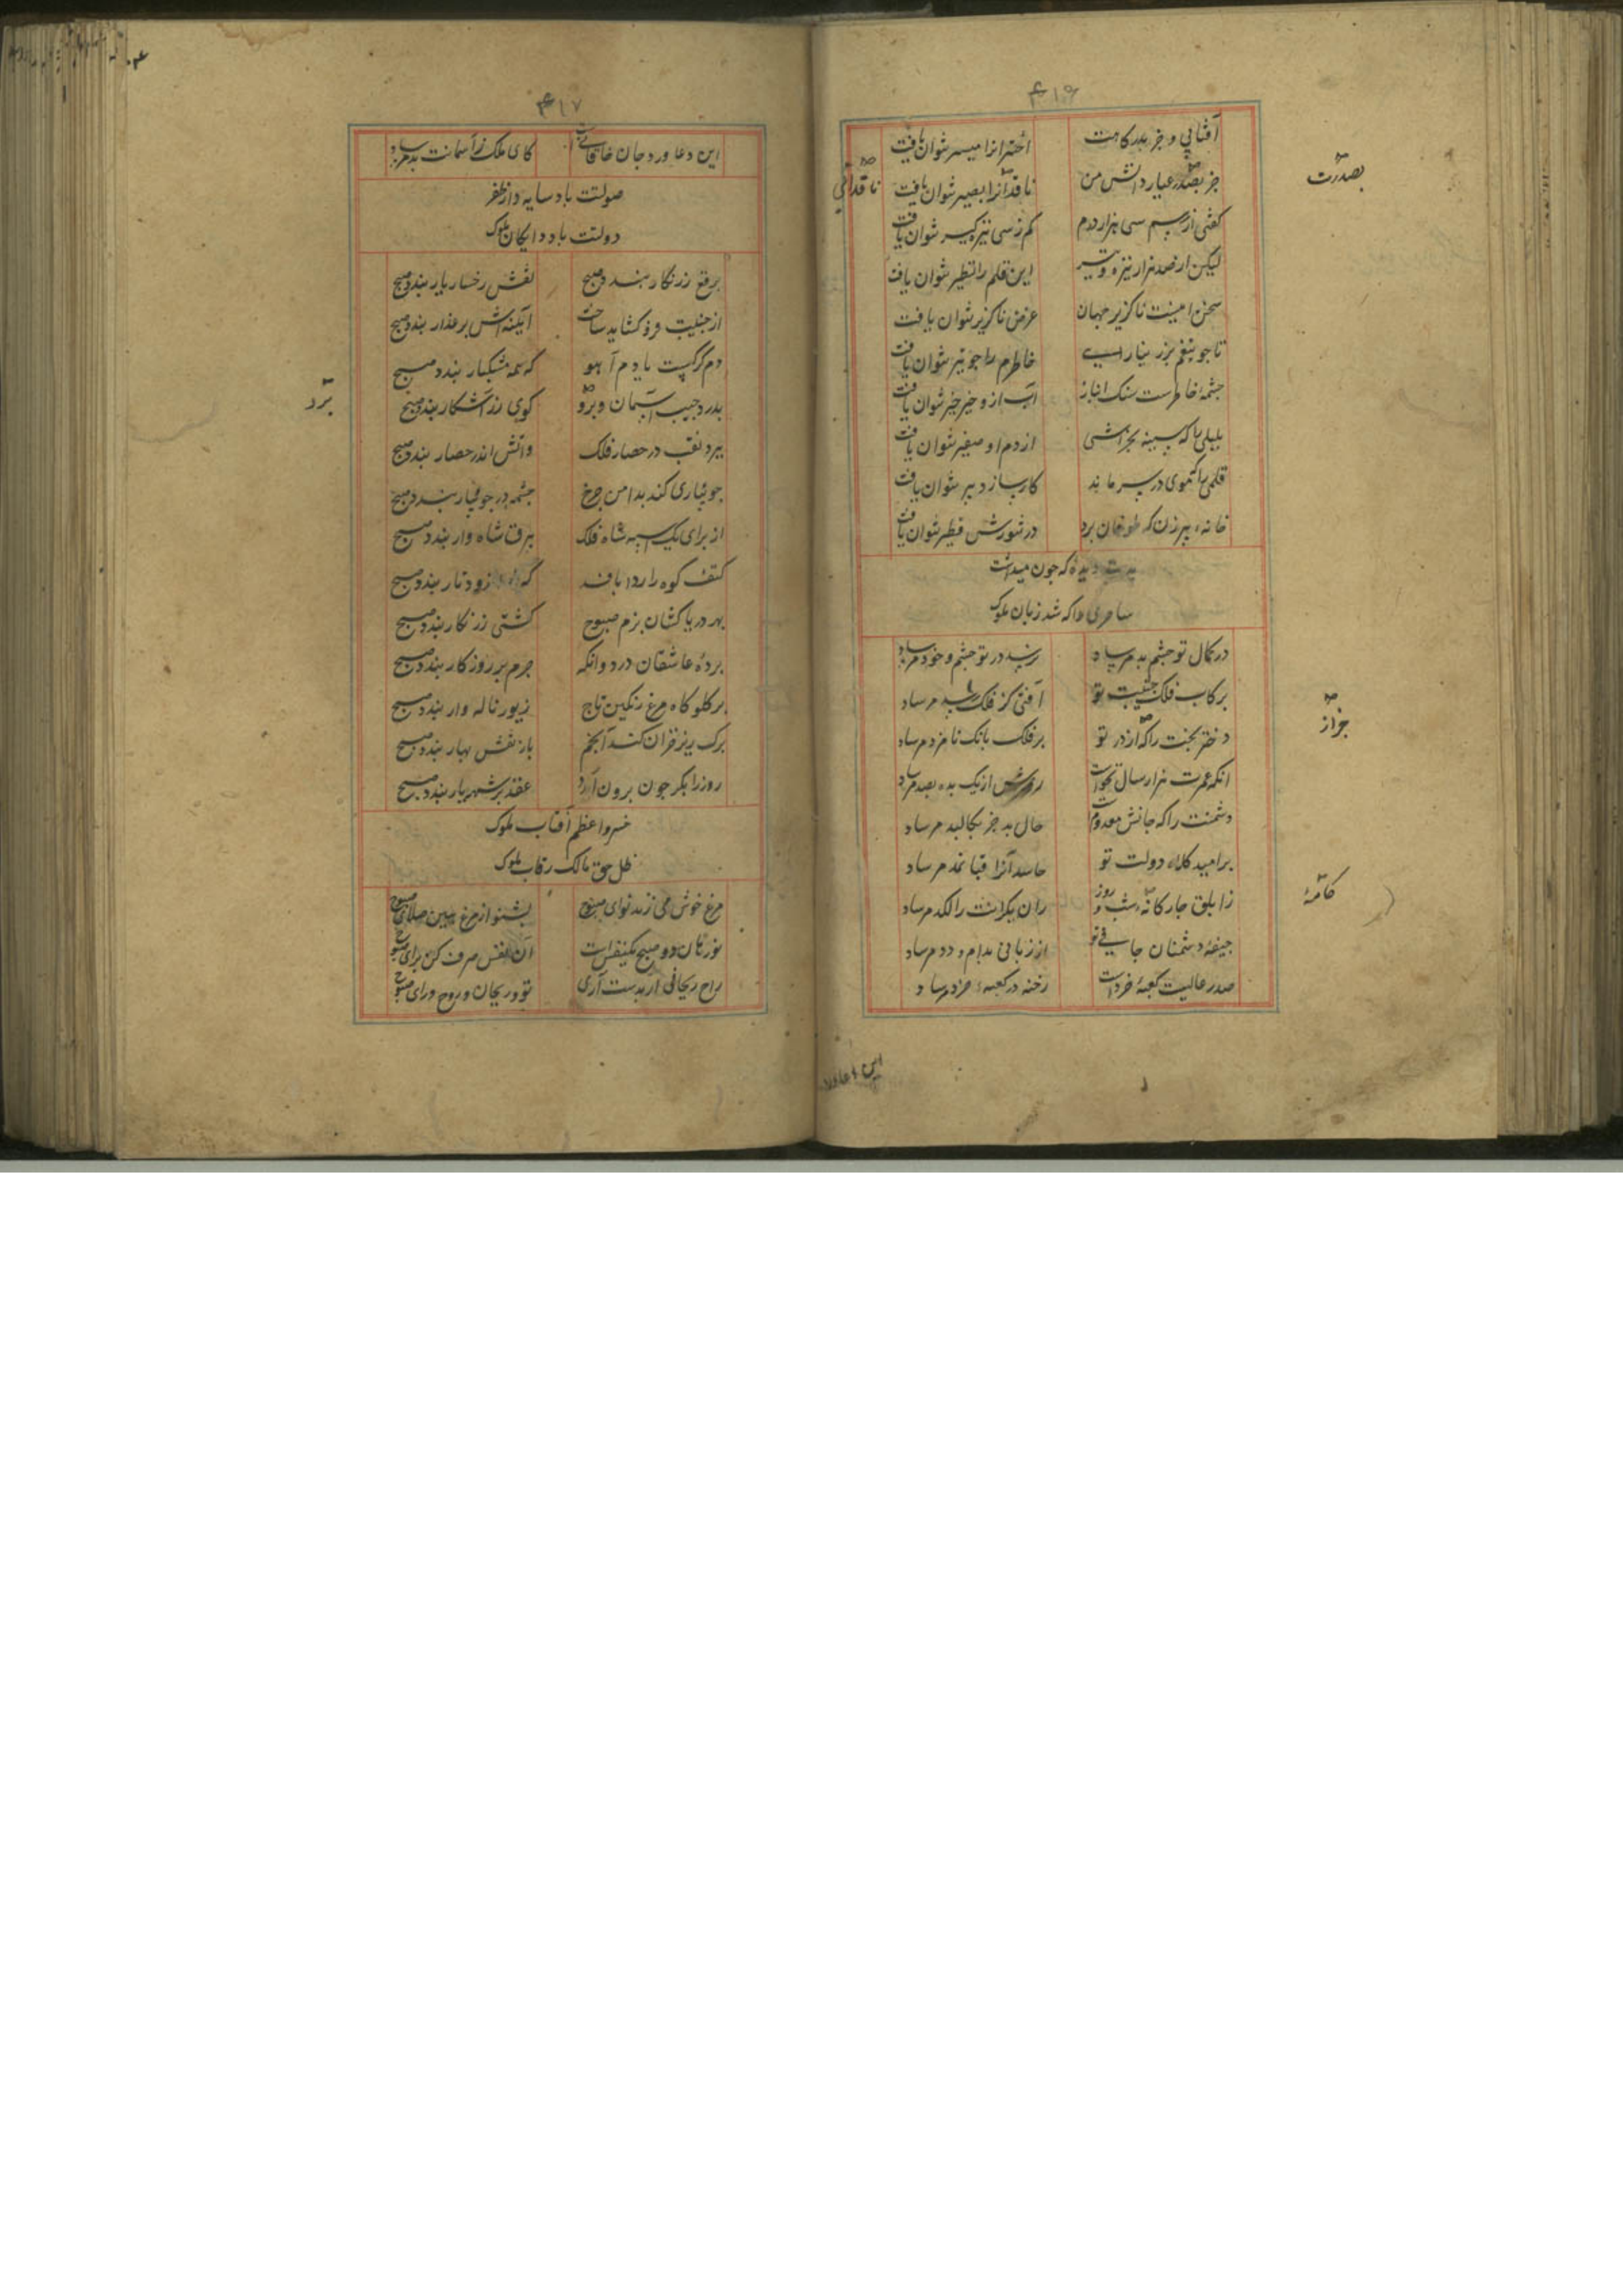 ۴۱۶
آفتابی و جز بدرکاهت
اخترانرا میسر نتوان یافت
جز بصدر عیار دانش من
ناقدانرا بصیر نتوان یافت
کفتی از رسم سی هزار درم
کم ز سی نیز کیر نتوان یافت
لیکن از صد هزار نیزه و تیر
این قلم را نظیر نتوان یافت
سخن امینت ناکزیر جهان
عرض ناکزیر نتوان یافت
خاطرم را جو تیر نتوان یافت
چشمهٔ خاطرست سنک انباز
آب ازو خیر خیر نتوان یافت
بلبلی را که سینه بخراشی
از دم او صفیر نتوان یافت
قلمی را که موی در سر ماند
کار ساز دبیر نتوان یافت
خانهٔ پیر زن که طوفان برد
در تنورش فطیر نتوان یافت
دیده که جون میداشت
ساحری را که شد زبان ملوک
در کمال تو چشم بد مرساد
برکاب فلک جنیبت تو
آفتی کز فلک رسد مرساد
دختر بخت را که از در تو
بر فلک بانک نامزد مرساد
انکه عمرت هزار سال نخواست
روزش از یک بده بصد مرساد
دشمنت را که جانش معدوم است
حال بد جز بکالبد مرساد
بر امید کلاه دولت تو
حاسد آنرا قبا نمد مرساد
زابلق جارکانه شب و روز
ران یکرانت را لکد مرساد
جیفهٔ دشمنان جافی تو
از زبانی بدام و دد مرساد
صدر عالیت کعبهٔ خرد است
رخنه در کعبهٔ خرد مرساد
بصدرت
ناقدانی
جز از
کامهٔ
۴۱۷
این دعا ورد جان خاقانیست
کای ملک ز آسمانت بد مرساد
صولتت باد سایه دار ظفر
دولتت باد دایکان ملوک
برقع زرنکار بندد صبح
نقش رخسار یار بندد صبح
از جنیبت فرو کشاید ساخت
آینه‌اش بر عذار بندد صبح
دم کرکیست یا دم آهو
که همه مشکبار بندد صبح
بدرد جیب آسمان و برو
کوی زر آشکار بندد صبح
ببرد نقب در حصار فلک
و آتش اندر حصار بندد صبح
جویباری کند بدامن چرخ
چشمه در جویبار بندد صبح
از برای یک اسبه شاه فلک
بیرق شاه‌وار بندد صبح
کتف کوه را ردا بافد
بهر دریا کشان بزم صبوح
کشتی زرنکار بندد صبح
پردهٔ عاشقان درد وانکه
جرم بر روزکار بندد صبح
بر کلوکاه مرغ رنکین تاج
زیور ناله‌وار بندد صبح
برک ریز خزان کند انجم
باز نقش بهار بندد صبح
روز را بکر جون برون آرد
عقد بر شهریار بندد صبح
خسرو اعظم آفتاب ملوک
ظل حق مالک رقاب ملوک
مرغ خوش می زند نوای صبوح
بشنو از مرغ هین صلای صبوح
نورهان دو صبح یکنفس است
آن نفس صرف کن برای صبوح
راح ریحانی ار بدست آری
تو و ریحان و روح ورای صبوح
برد